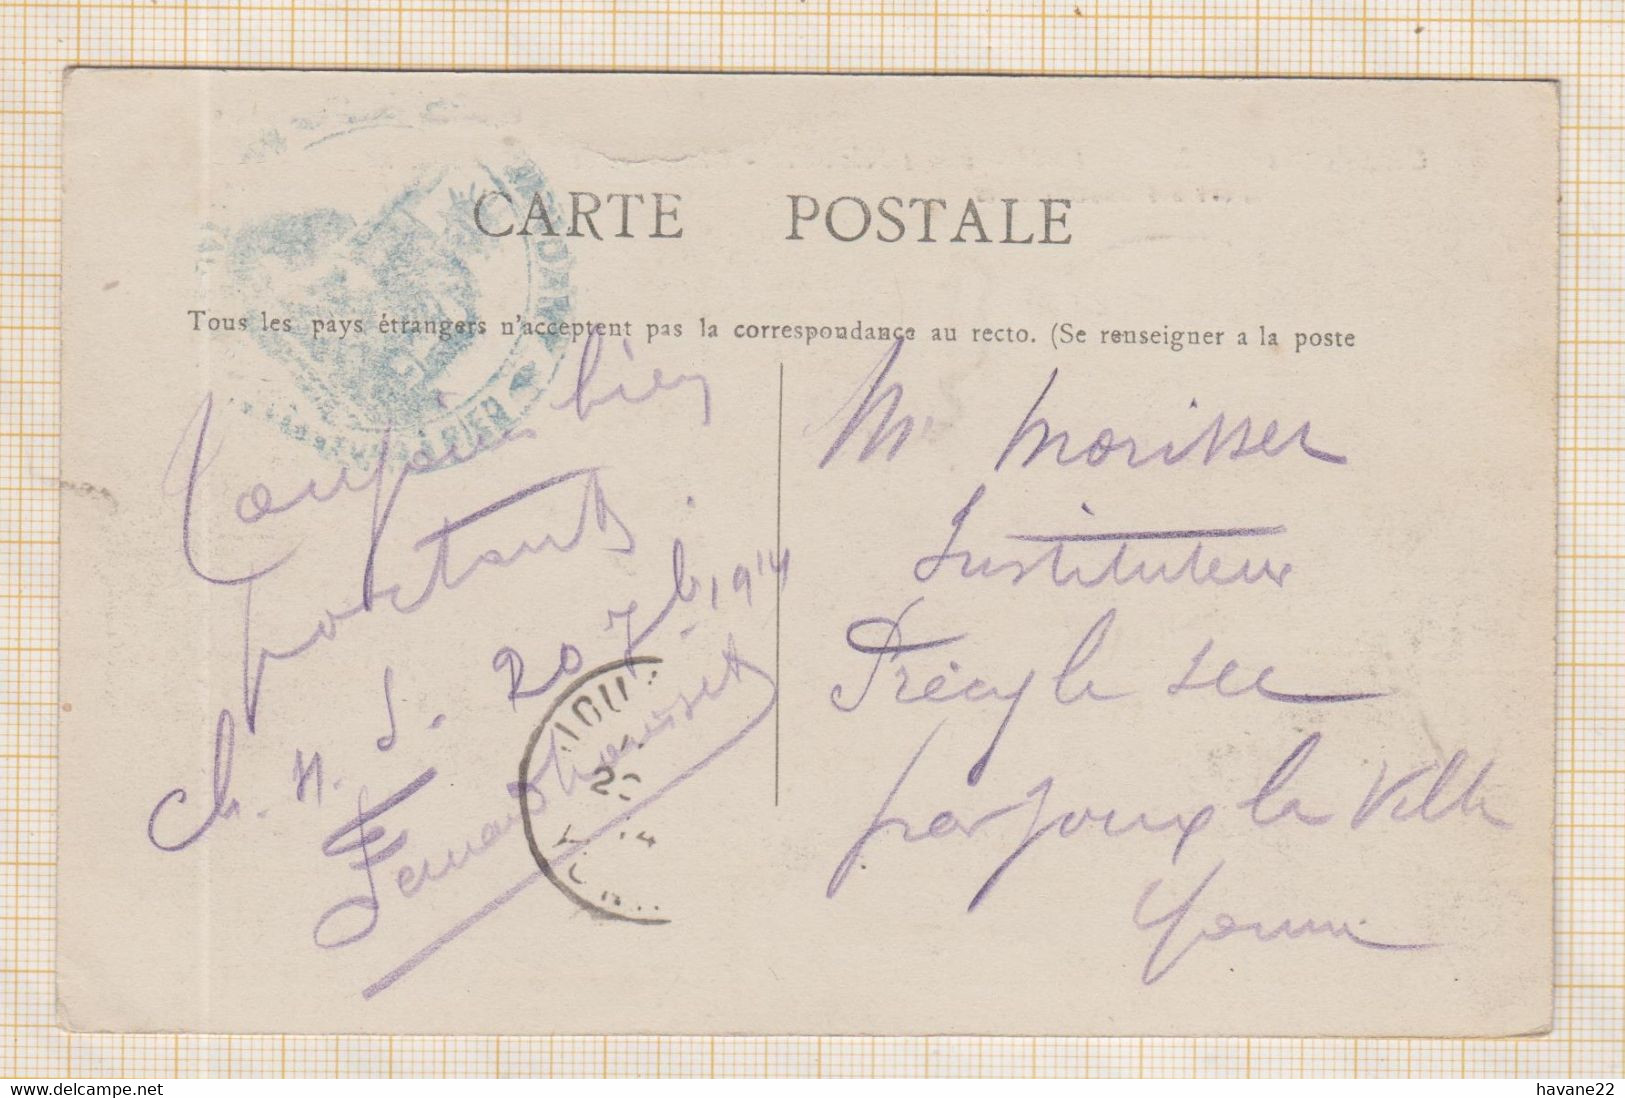 CARTE POSTALE
Tous les pays étrangers n'acceptent pas la correspondance au recto. (Se renseigner a la poste
Toujours bien
portant.
Ch. N. S. 20 7b. 1914
Fernand
Mr Morisset
Instituteur
Précy le Sec
par Joux la Ville
Yonne
website: delcampe.net
havane22